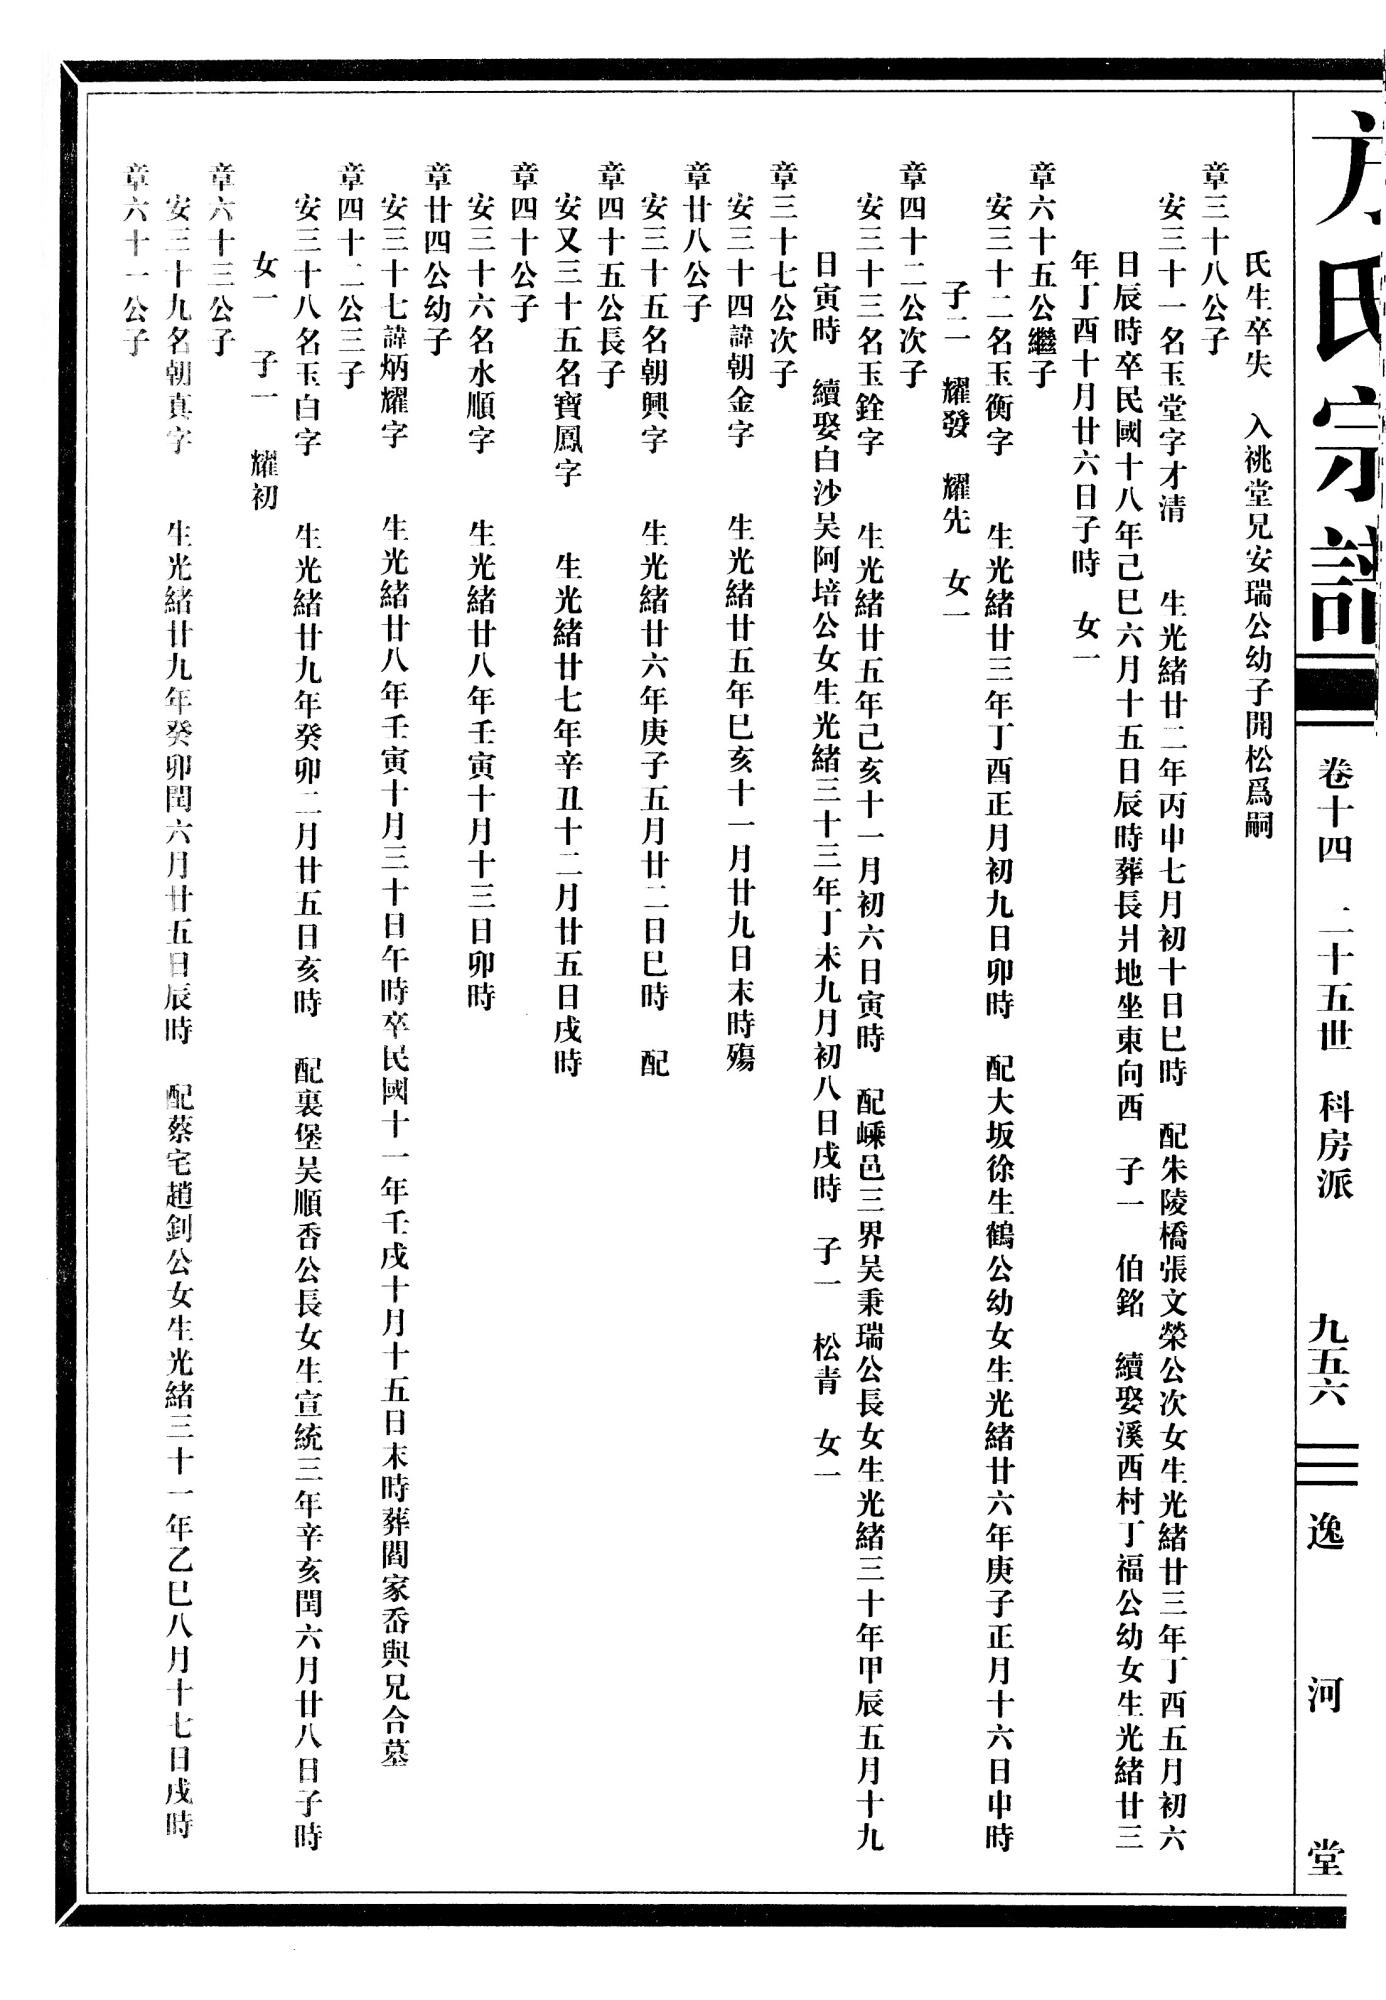 方氏宗譜
卷十四 二十五世 科房派 九五六
逸河堂
氏生卒失 入祧堂兄安瑞公幼子開松爲嗣
章三十八公子
安三十一名玉堂字才清 生光緒廿二年丙申七月初十日巳時 配朱陵橋張文榮公次女生光緒廿三年丁酉五月初六
日辰時卒民國十八年己巳六月十五日辰時葬長爿地坐東向西 子一 伯銘 續娶溪西村丁福公幼女生光緒廿三
年丁酉十月廿六日子時 女一
章六十五公繼子
安三十二名玉衡字 生光緒廿三年丁酉正月初九日卯時 配大坂徐生鶴公幼女生光緒廿六年庚子正月十六日申時
子二 耀發 耀先 女一
章四十二公次子
安三十三名玉銓字 生光緒廿五年己亥十一月初六日寅時 配嵊邑三界吴秉瑞公長女生光緒三十年甲辰五月十九
日寅時 續娶白沙吴阿培公女生光緒三十三年丁未九月初八日戌時 子一 松青 女一
章三十七公次子
安三十四諱朝金字 生光緒廿五年巳亥十一月廿九日末時殤
章廿八公子
安三十五名朝興字 生光緒廿六年庚子五月廿二日巳時 配
章四十五公長子
安又三十五名寶鳳字 生光緒廿七年辛丑十二月廿五日戌時
章四十公子
安三十六名水順字 生光緒廿八年壬寅十月十三日卯時
章廿四公幼子
安三十七諱炳耀字 生光緒廿八年壬寅十月三十日午時卒民國十一年壬戌十月十五日末時葬閻家岙與兄合墓
章四十二公三子
安三十八名玉白字 生光緒廿九年癸卯二月廿五日亥時 配裏堡吴順香公長女生宣統三年辛亥閏六月廿八日子時
女一 子一 耀初
章六十三公子
安三十九名朝真字 生光緒廿九年癸卯閏六月廿五日辰時 配蔡宅趙釗公女生光緒三十一年乙巳八月十七日戌時
章六十一公子